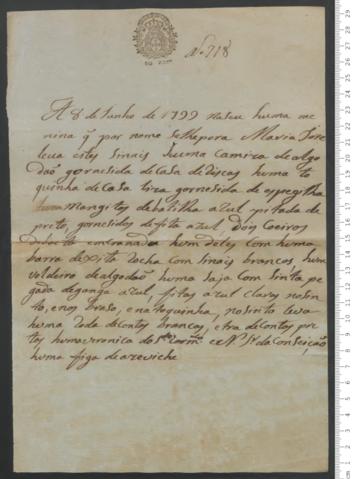 Nº 718
A 8 de Junho de 1799 naseu huma me
nina q̃ por nome se lhe pora Maria
leva estes sinais huma camiza de algo
dão gornesida de Casa de discos huma to
quinha de Casa liza gornesida de espeguilha
huns mangitos de baitilha azul pitada de
preto, gornesidos de fita azul, Dois Coeiros
de baeta emcranada hum deles com huma
barra de xita roxa com sinais brancos hum
voldreiro de algodão huma saja com sinta pe
gada de ganga azul, fitas azul claro no sin
to, e nos braso, e na toquinha, no seito leva
huma roda de contos brancos, e tra de contos pre
tos huma veronica do e N. Sr.ª da Conseição
huma figa de azeviche